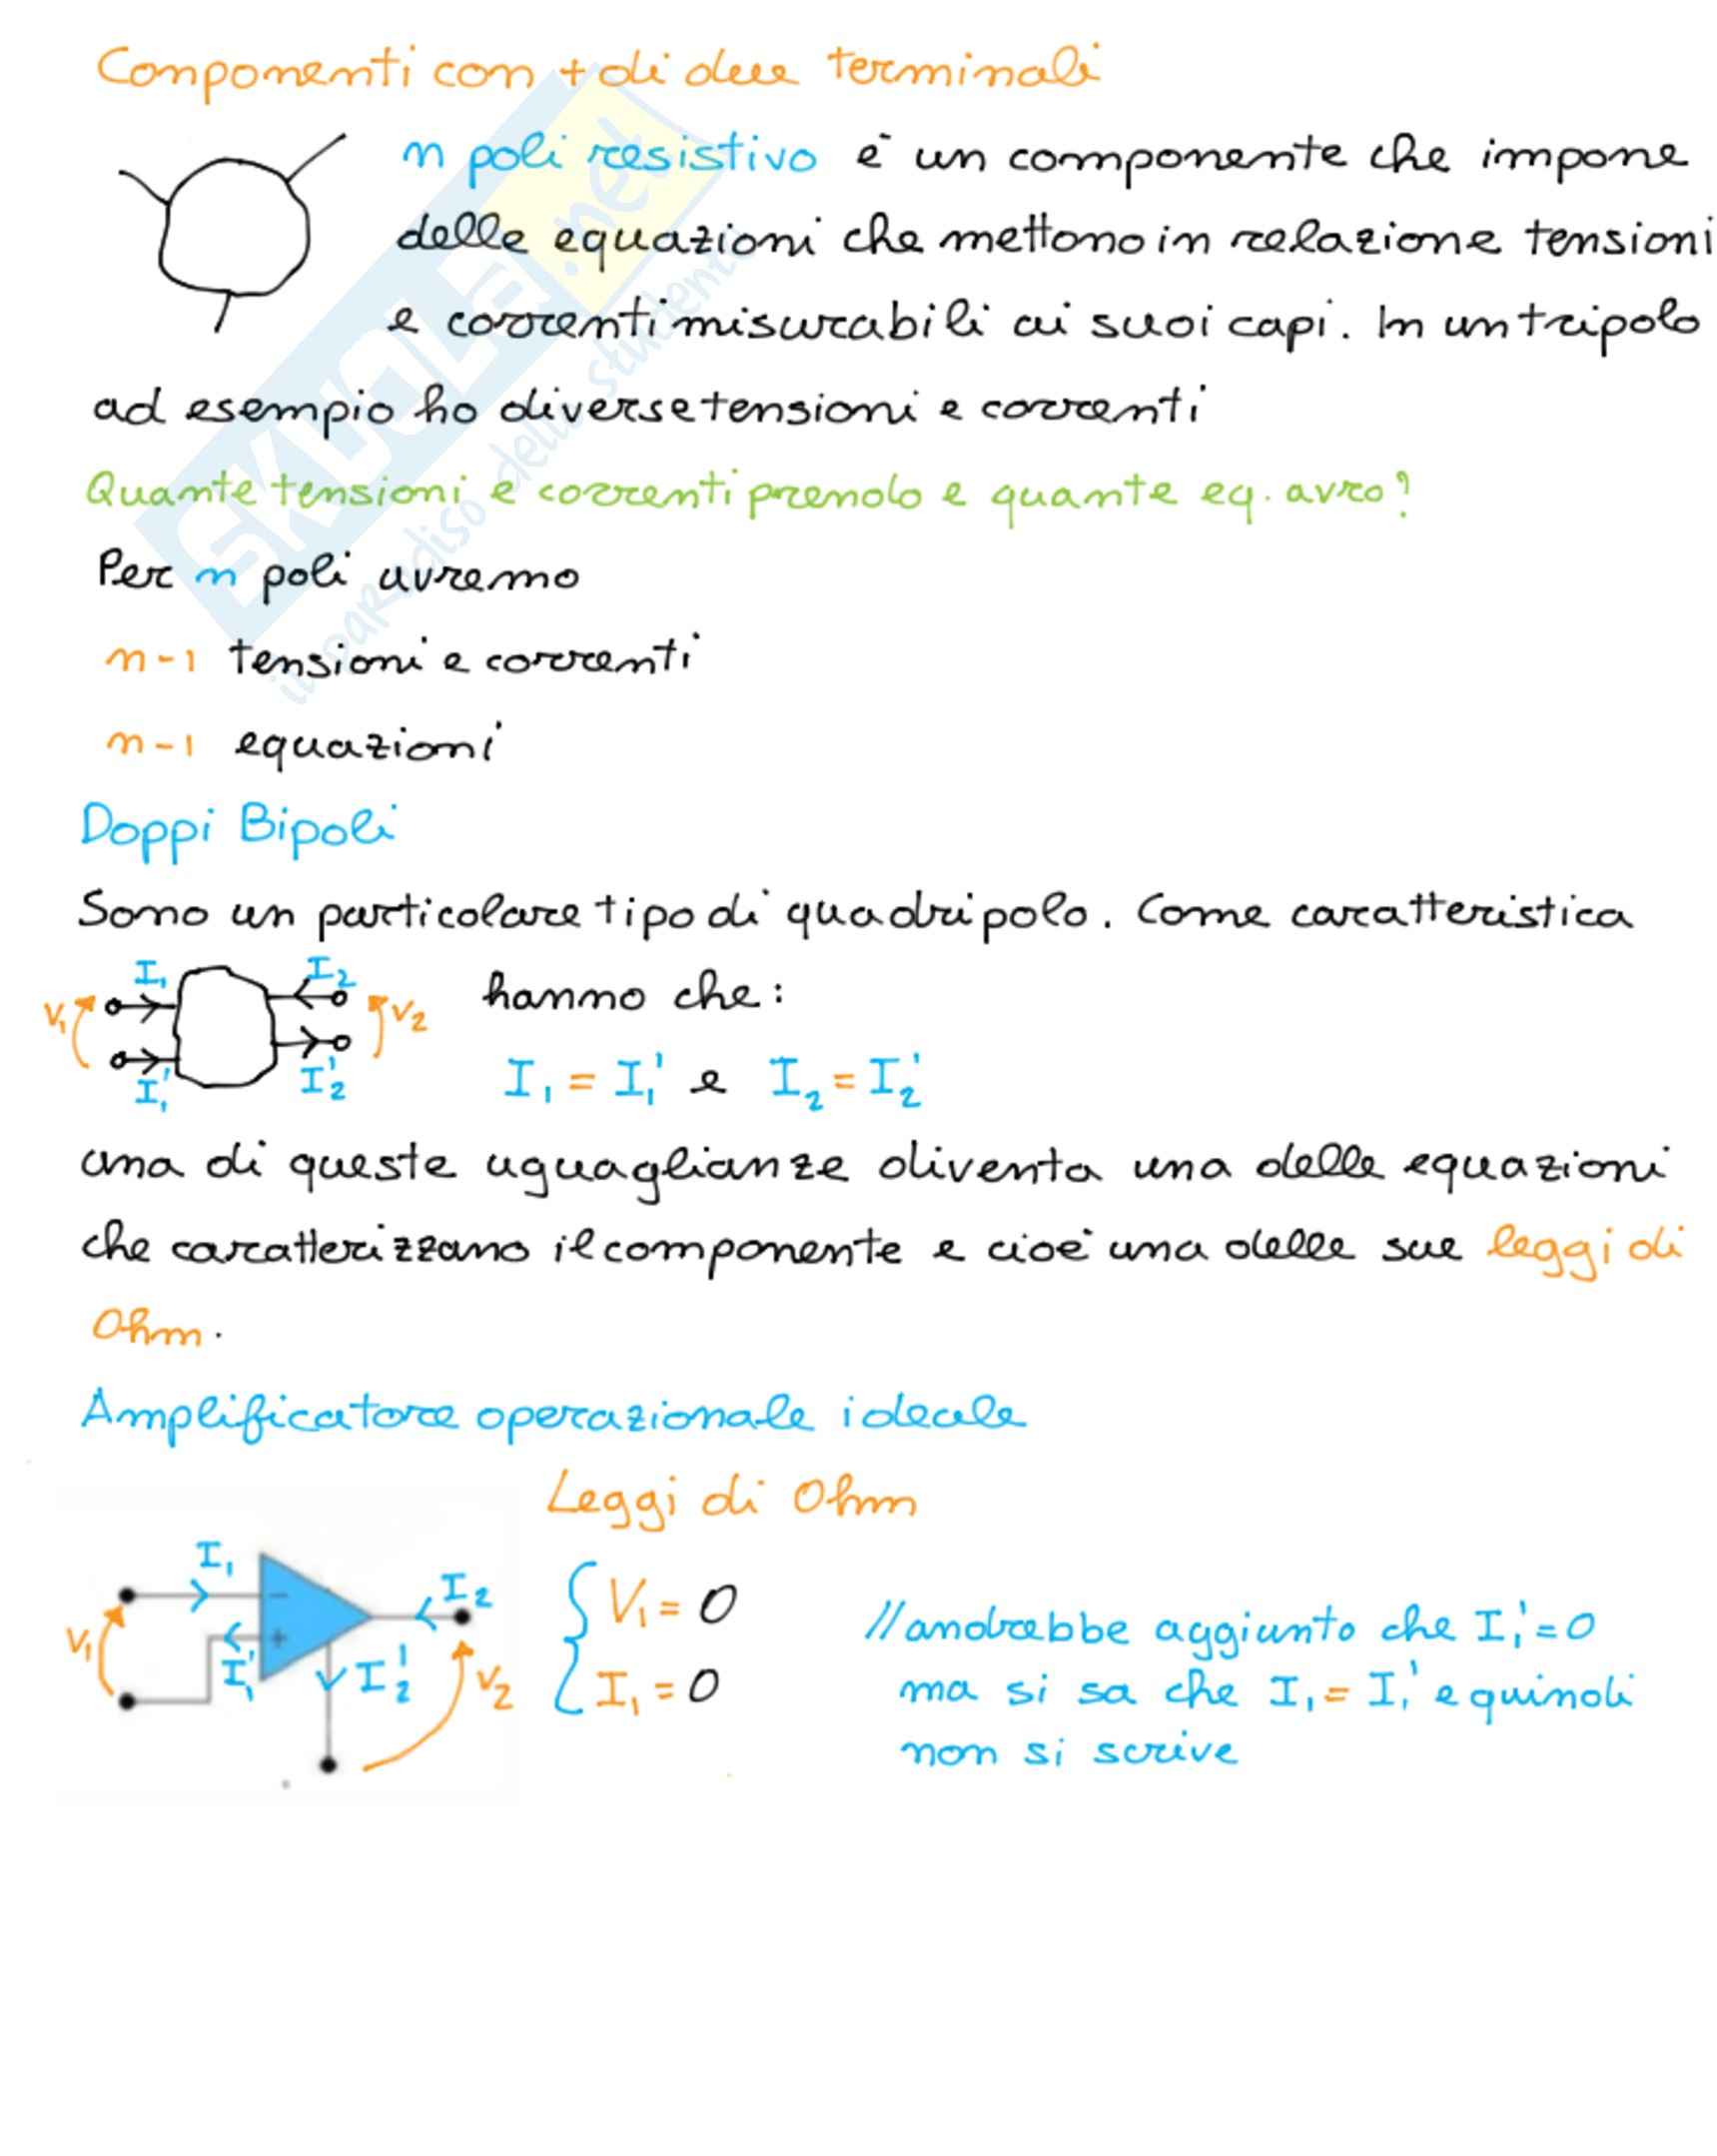 Componenti con + di due terminali
n poli resistivo è un componente che impone
delle equazioni che mettono in relazione tensioni
e correnti misurabili ai suoi capi. In un tripolo
ad esempio ho diverse tensioni e correnti
Quante tensioni e correnti prendo e quante eq. avrò?
Per n poli avremo
n-1 tensioni e correnti
n-1 equazioni
Doppi Bipoli
Sono un particolare tipo di quadripolo. Come caratteristica
hanno che:
V₁ I₁ I₁' I₂ I₂' V₂
I₁ = I₁' e I₂ = I₂'
una di queste uguaglianze diventa una delle equazioni
che caratterizzano il componente e cioè una delle sue leggi di
Ohm.
Amplificatore operazionale ideale
Leggi di Ohm
V₁ I₁ I₁' - + I₂ I₂' V₂
{ V₁ = 0
I₁ = 0
// andrebbe aggiunto che I₁' = 0
ma si sa che I₁ = I₁' e quindi
non si scrive
SKUOLA.net
il paradiso dello studente